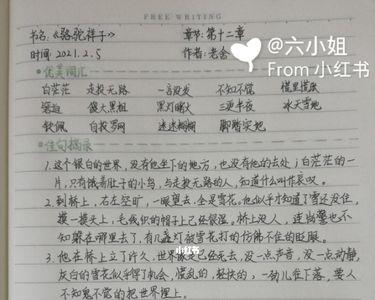 FREE WRITING
书名:《骆驼祥子》 章节:第十二章
时间:2021.2.5 作者:老舍
@六小姐
From 小红书
优美词汇
白茫茫 走投无路 一言没发 不知不觉 慌里慌张
窘迫 傻大黑粗 黑灯瞎火 三更半夜 冰天雪地
钦佩 自投罗网 迷迷糊糊 脚踏实地
佳句摘录
1.这个银白的世界,没有他坐下的地方,也没有他的去处;白茫茫的一
片,只有饿着肚子的小鸟,与走投无路的人,知道什么叫作哀叹。
2.到桥上,左右空旷,一眼望去,全是雪花。他似乎才知道了雪还没住,
摸一摸头上,毛线织的帽子上已经很湿。桥上没人,连岗警也不
知躲在哪里去了,有几盏灯被雪花打的仿佛不住的眨眼。
3.他在桥上立了许久,世界像是已经死去,没一点声音,没一点动静,
灰白的雪花似乎得了机会,慌乱的,轻快的,一劲儿往下落,要人
不知鬼不觉的把世界埋上。
小红书